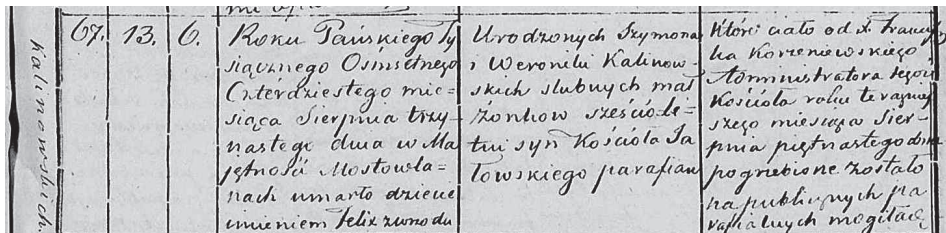 Kalinowskich.
67. 13. 6.
Roku Pańskiego Ty-
siącznego Ośmsetnego
Czterdziestego mie-
siąca Sierpnia trzy-
nastego dnia w Ma
jętności Mostowla-
nach umarło dziecie
imieniem Felix zwrodu
Urodzonych Szymona
i Weroniki Kalinow-
skich slubnych mał
żonkow sześciole-
tni syn Kościoła Ja
łowskiego parafian
Któré ciało od X. Francisz
ka Korzeniewskiego
Administratora tegoż
Kościoła roku terazniey
szego miesiąca Sier-
pnia piętnastego dnia
pogrzebione zostało
na publicznych pa
rafialnych mogiłach